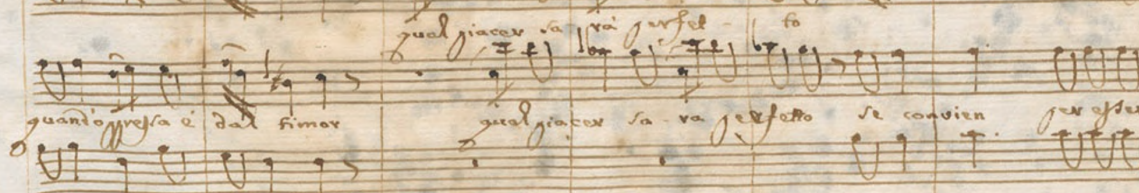 qual piacer sa rà perfet - to
quand'oppressa è dal timor qual piacer sa - ra perfetto se convien per esser